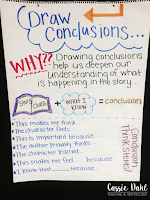 Draw
Conclusions...
WHY?? Drawing conclusions
help us deepen our
understanding of what
is happening in the story.
+ WHAT I KNOW = conclusion
• This makes me think
• The character feels
• This is important because
• The author probably thinks
• The character learned
• This makes me feel because
• I know that because
Conclusion
Thinking
Stems!
Cassie Dahl
TEACHING & TECHNOLOGY